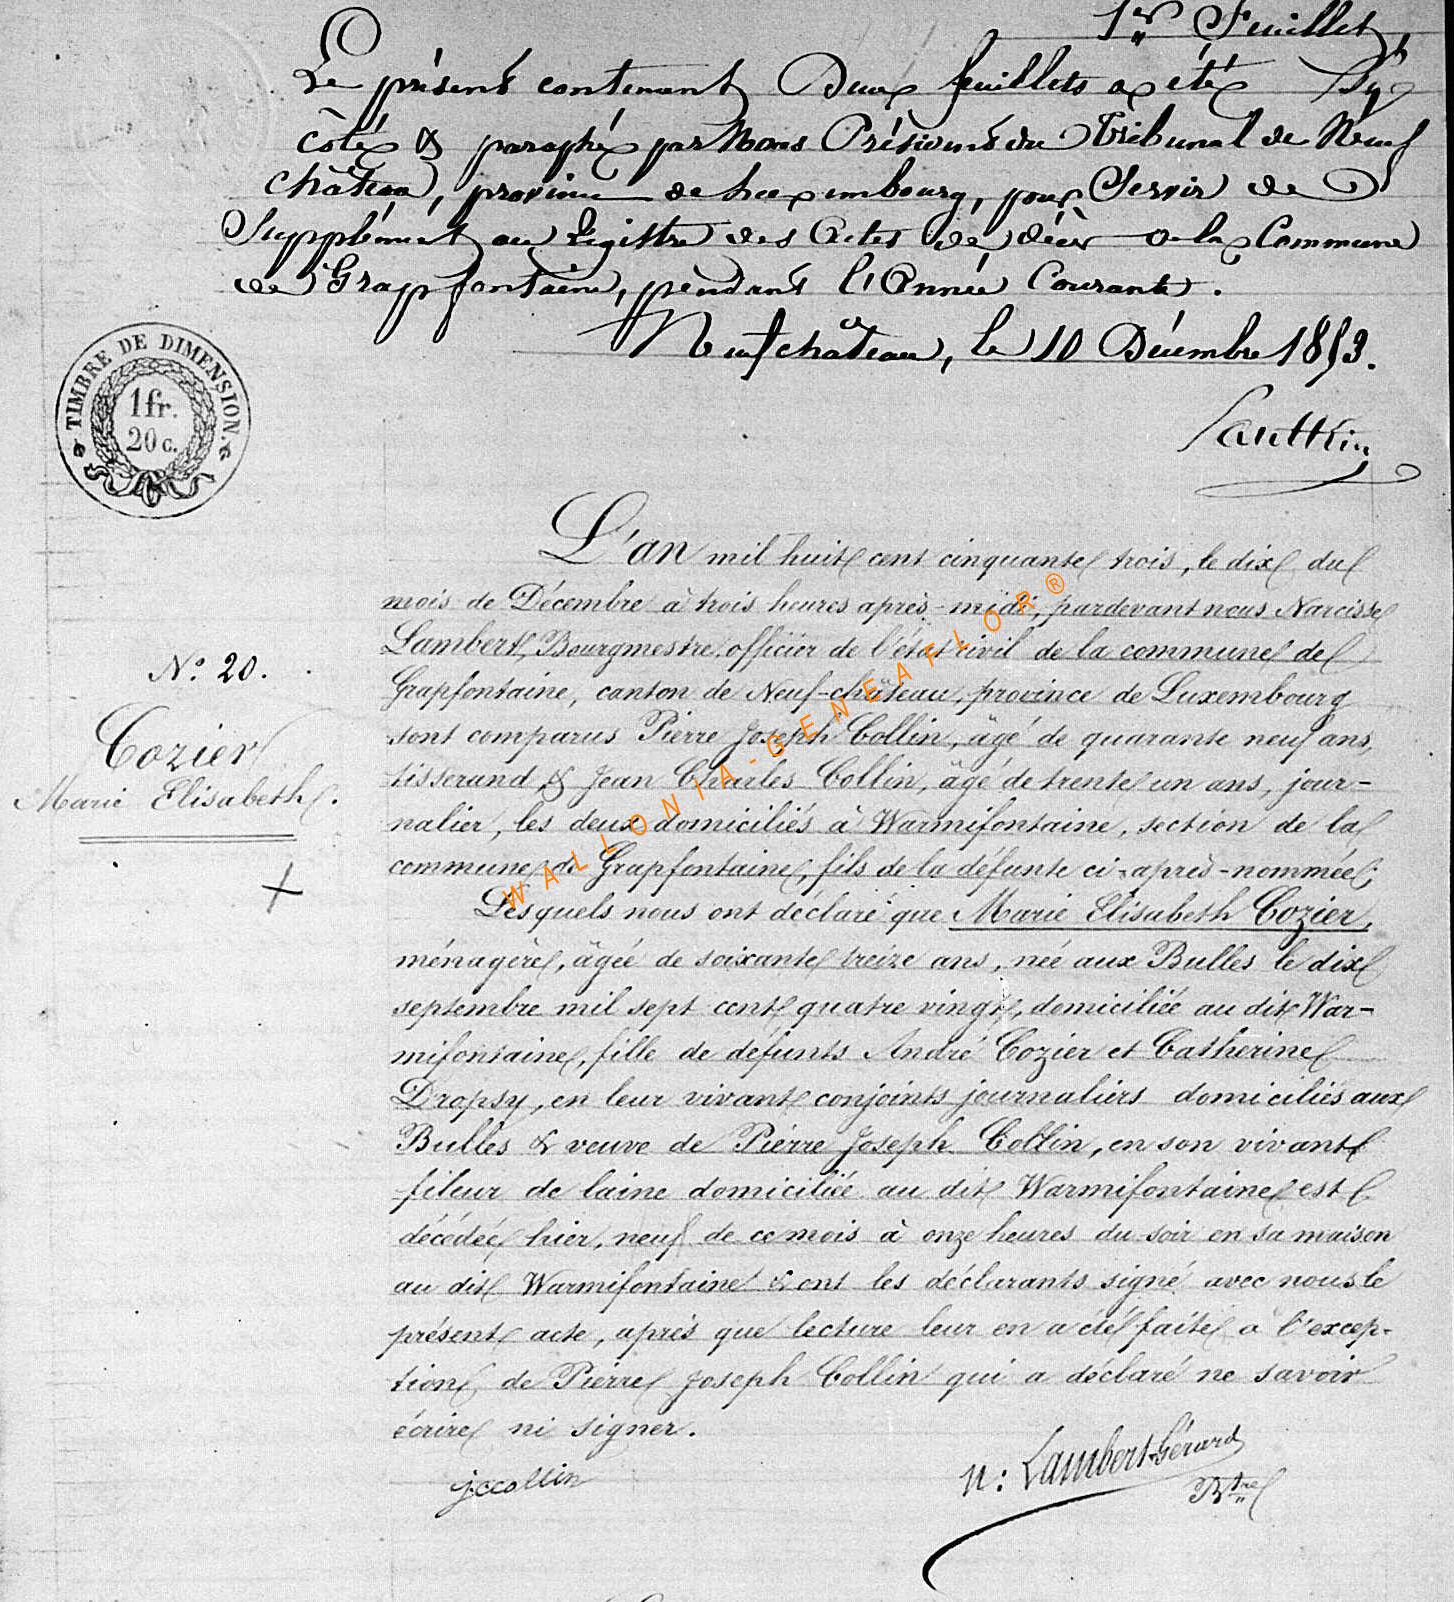 1er Feuillet
Le présent contenant Deux feuillets a été
côté & paraphé par Nous Président du Tribunal de Neuf
château, province de Luxembourg, pour Servir de
Supplément au Régistre des Actes de décès de la Commune
de Grapfontaine, pendant l'Année Courante.
Neufchâteau, le 10 Décembre 1853.
TIMBRE DE DIMENSION.
1 fr.
20 c.
L'an mil huit cent cinquante trois, le dix du
mois de Décembre à trois heures après-midi, pardevant nous Narcisse
Lambert, Bourgmestre officier de l'état civil de la commune de
Grapfontaine, canton de Neuf-château, province de Luxembourg
sont comparus Pierre Joseph Collin, âgé de quarante neuf ans,
tisserand, & Jean Charles Collin, âgé de trente un ans, jour-
nalier, les deux domiciliés à Warmifontaine, section de la
commune de Grapfontaine, fils de la défunte ci-après-nommée;
Lesquels nous ont déclaré que Marie Elisabeth Cozier,
ménagère, âgée de soixante treize ans, née aux Bulles le dix
septembre mil sept cent quatre vingt, domiciliée au dit War-
mifontaine, fille de défunts André Cozier et Catherine
Dropsy, en leur vivant conjoints journaliers domiciliés aux
Bulles & veuve de Pierre Joseph Collin, en son vivant
fileur de laine domiciliée au dit Warmifontaine est
décédée hier, neuf de ce mois à onze heures du soir en sa maison
au dit Warmifontaine & ont les déclarants signé avec nous le
présent acte, après que lecture leur en a été faite à l'excep-
tion de Pierre Joseph Collin qui a déclaré ne savoir
écrire ni signer.
No. 20.
Cozier
Marie Elisabeth.
jccollin
N: Lambert-Gérard
Btre
WALLONIA-GENEAFLOR®